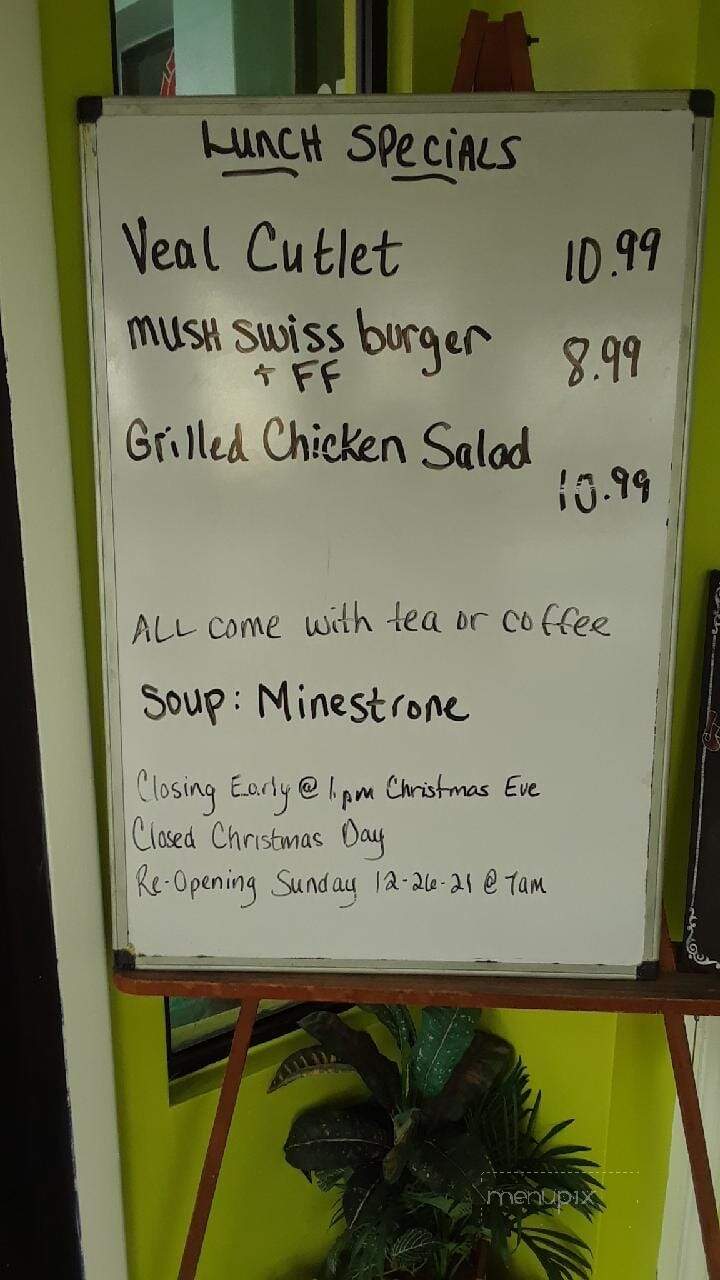 LUNCH SPECIALS
Veal Cutlet 10.99
MUSH SWISS burger 8.99
+ FF
Grilled Chicken Salad
10.99
ALL come with tea or coffee
Soup: Minestrone
Closing Early @ 1pm Christmas Eve
Closed Christmas Day
Re-Opening Sunday 12-26-21 @ 7am
menupix